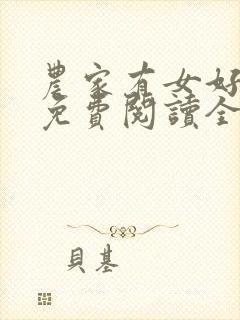 農家有女好
免費閱讀全
貝基